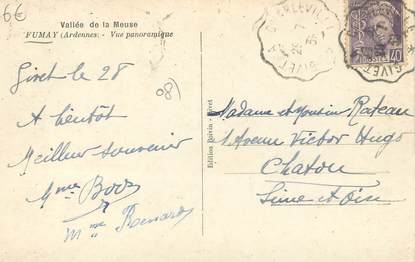 6€
Vallée de la Meuse
FUMAY (Ardennes) - Vue panoramique
Givet le 28
(08)
A bientôt
Meilleur souvenir
Mme
Mme Renard
Edition Boivin - Givet
GIVET A CHARLEVILLE
28 - 7
39
POSTES 40
Madame et Monsieur Rateau
Avenue Victor Hugo
Chatou
Seine et Oise